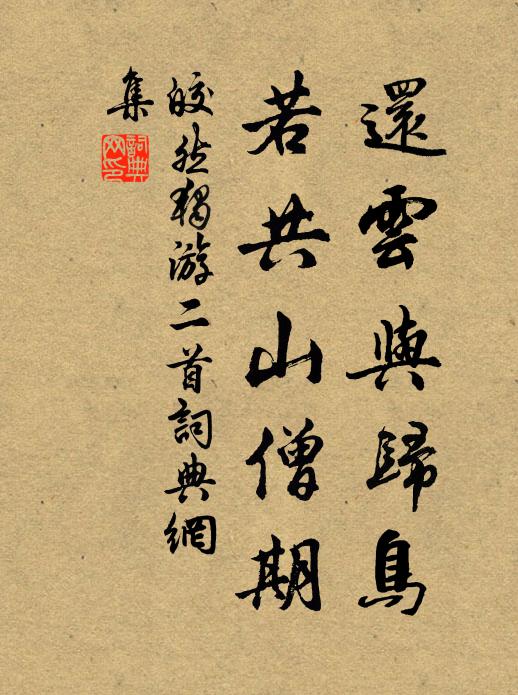 還雲與歸鳥
若共山僧期
皎然獨游二首詞典網
集
詞典网印